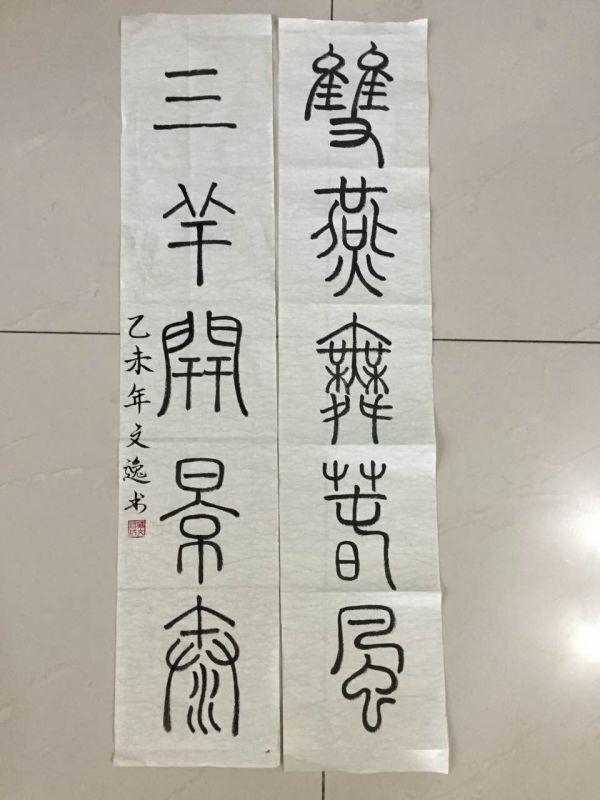 雙燕舞春風
三羊開景泰
乙未年文逸书